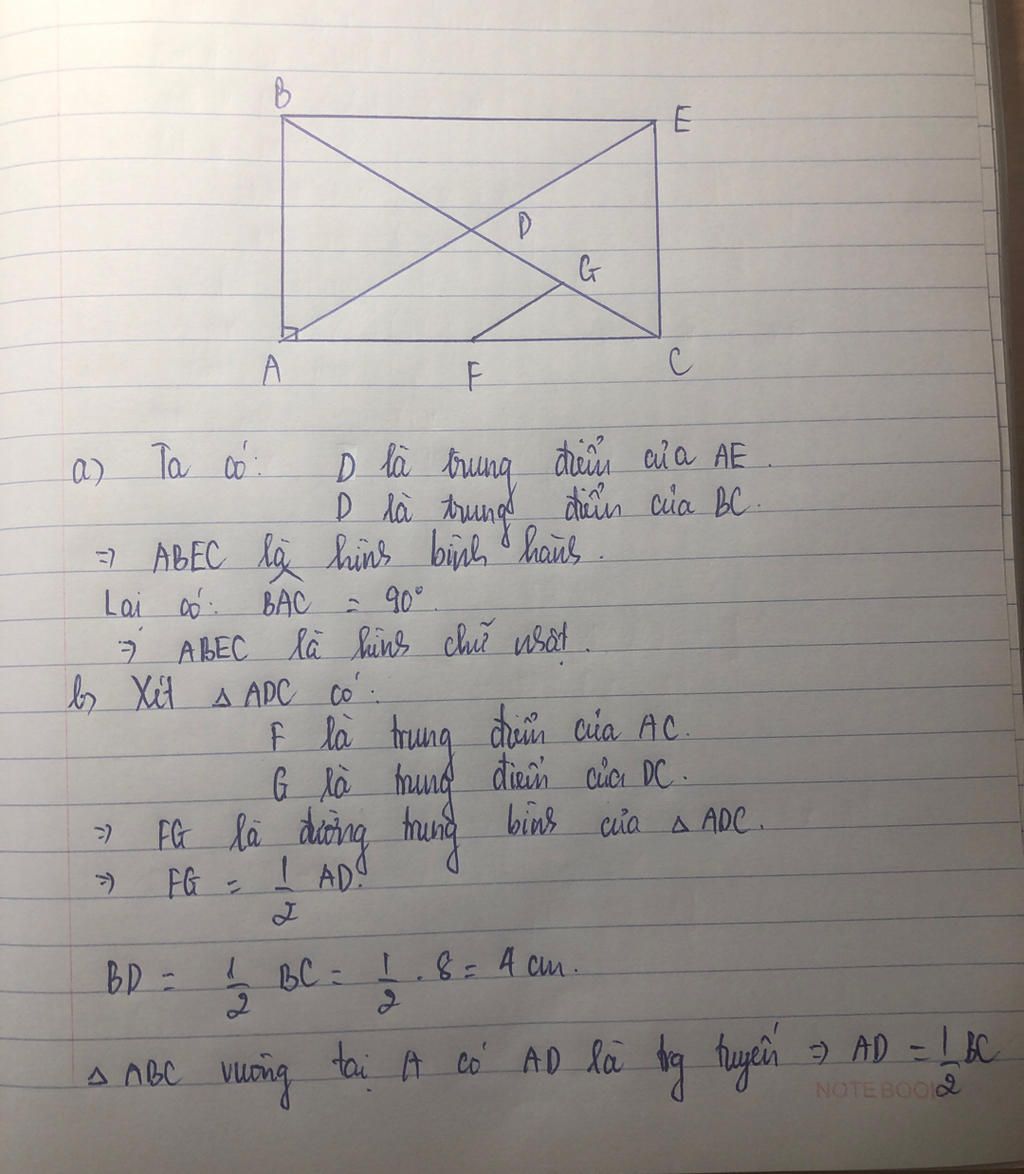 B
E
D
G
A
F
C
a) Ta có: D là trung điểm của AE.
D là trung điểm của BC.
=> ABEC là hình bình hành.
Lại có: BAC = 90°.
=> ABEC là hình chữ nhật.
b) Xét △ ADC có:
F là trung điểm của AC.
G là trung điểm của DC.
=> FG là đường trung bình của △ ADC.
=> FG = 1/2 AD.
BD = 1/2 BC = 1/2 . 8 = 4 cm.
△ ABC vuông tại A có AD là trg tuyến => AD = 1/2 BC
NOTEBOOK